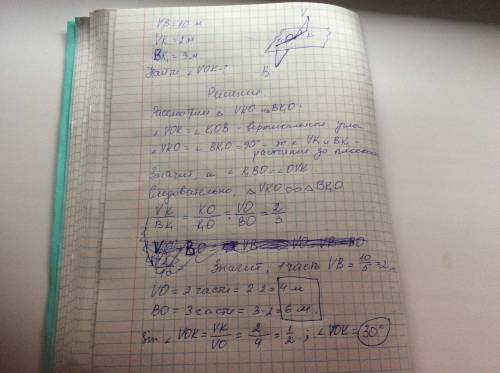 VB = 10 м
VK = 2 м
BK₁ = 3 м
Найти ∠VOK - ?
V
K
B
Решение
Рассмотрим Δ VKO и BK₁O:
∠VOK = ∠K₁OB - вертикальные углы
∠VKO = ∠BK₁O = 90° - т.к. VK и BK₁
расстояние до плоскос
Значит и ∠K₁BO = ∠OVK
Следовательно, ΔVKO ∞ ΔBK₁O
VK/BK₁ = KO/K₁O = VO/BO = 2/3
Значит, 1 часть VB = 10/5 = 2 м
VO = 2 части = 2·2 = 4 м
BO = 3 части = 3·2 = 6 м.
Sin ∠VOK = VK/VO = 2/4 = 1/2 ; ∠VOK = 30°